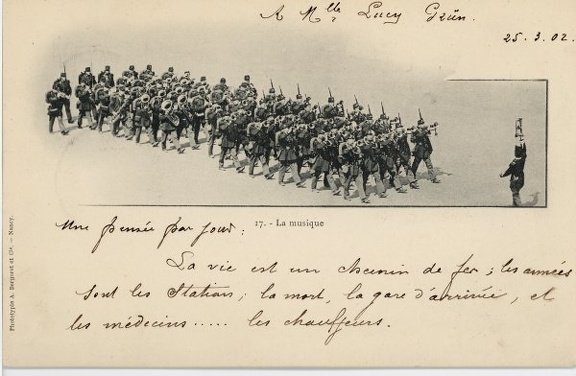 A Mlle Lucy Grün.
25.3.02.
17. - La musique
Une pensée par jour:
La vie est un chemin de fer; les années
sont les Stations; la mort, la gare d'arrivée, et
les médecins..... les chauffeurs.
Phototypie A. Bergeret et Cie. — Nancy.